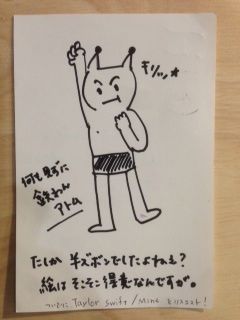 キリッ★
何も見ずに
鉄わん
アトム
たしか 半ズボンでしたよねぇ?
絵はそこそこ得意なんですが。
ついでに Taylor Swift / Mine をリクエスト!